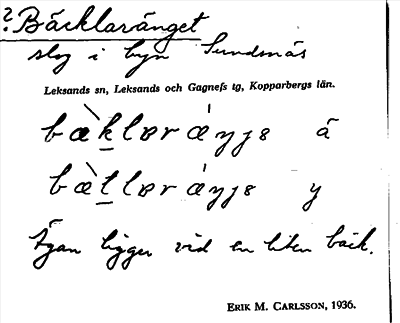 ? Bäcklaränget
slog i byn Sundsnäs
Leksands sn, Leksands och Gagnefs tg, Kopparbergs län.
bæ̀klɐrǽŋjɐ ä
bæ̀tlɐrǽŋjɐ y
Ägan ligger vid en liten bäck.
ERIK M. CARLSSON, 1936.